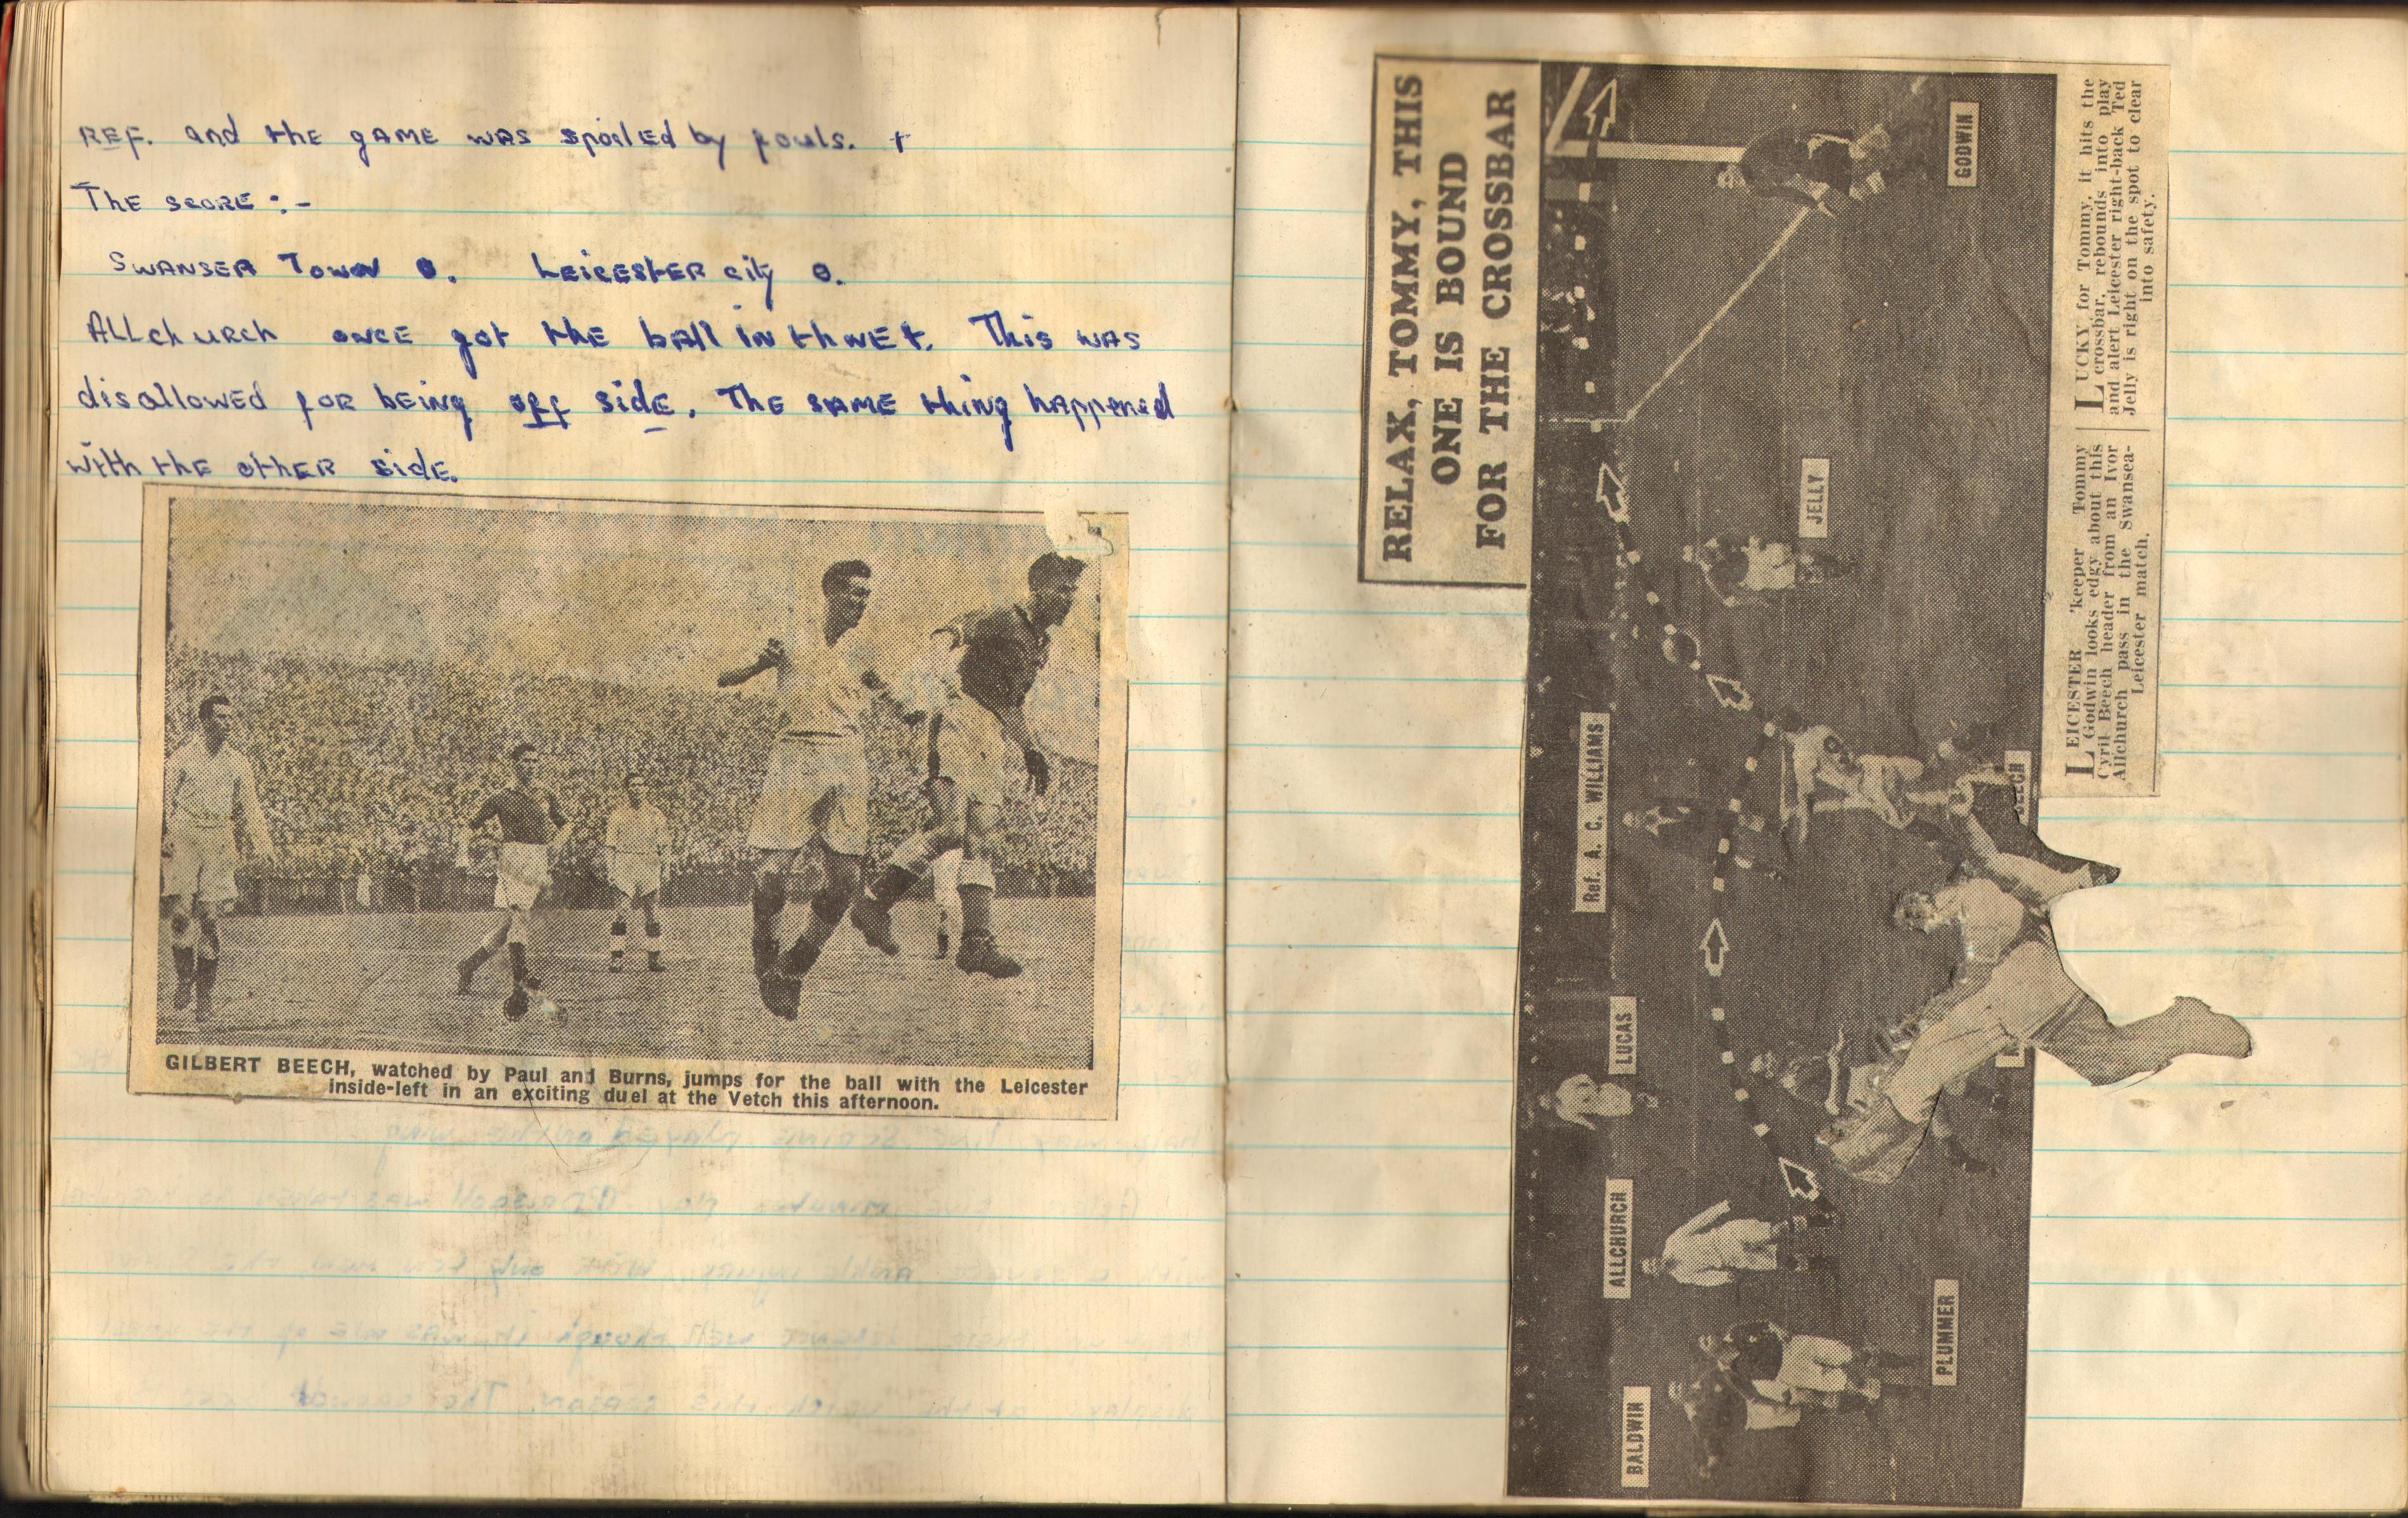 REF. and the game was spoiled by fouls. +
The score :-
Swansea Town 0. Leicester city 0.
Allchurch once got the ball in thnet. This was
disallowed for being off side. The same thing happened
with the other side.
GILBERT BEECH, watched by Paul and Burns, jumps for the ball with the Leicester
inside-left in an exciting duel at the Vetch this afternoon.
RELAX, TOMMY, THIS
ONE IS BOUND
FOR THE CROSSBAR
GODWIN
JELLY
Ref. A. C. WILLIAMS
BEECH
LUCAS
ALLCHURCH
PLUMMER
BALDWIN
LEICESTER 'keeper Tommy
Godwin looks edgy about this
Cyril Beech header from an Ivor
Allchurch pass in the Swansea-
Leicester match.
LUCKY for Tommy, it hits the
crossbar, rebounds into play
and alert Leicester right-back Ted
Jelly is right on the spot to clear
into safety.